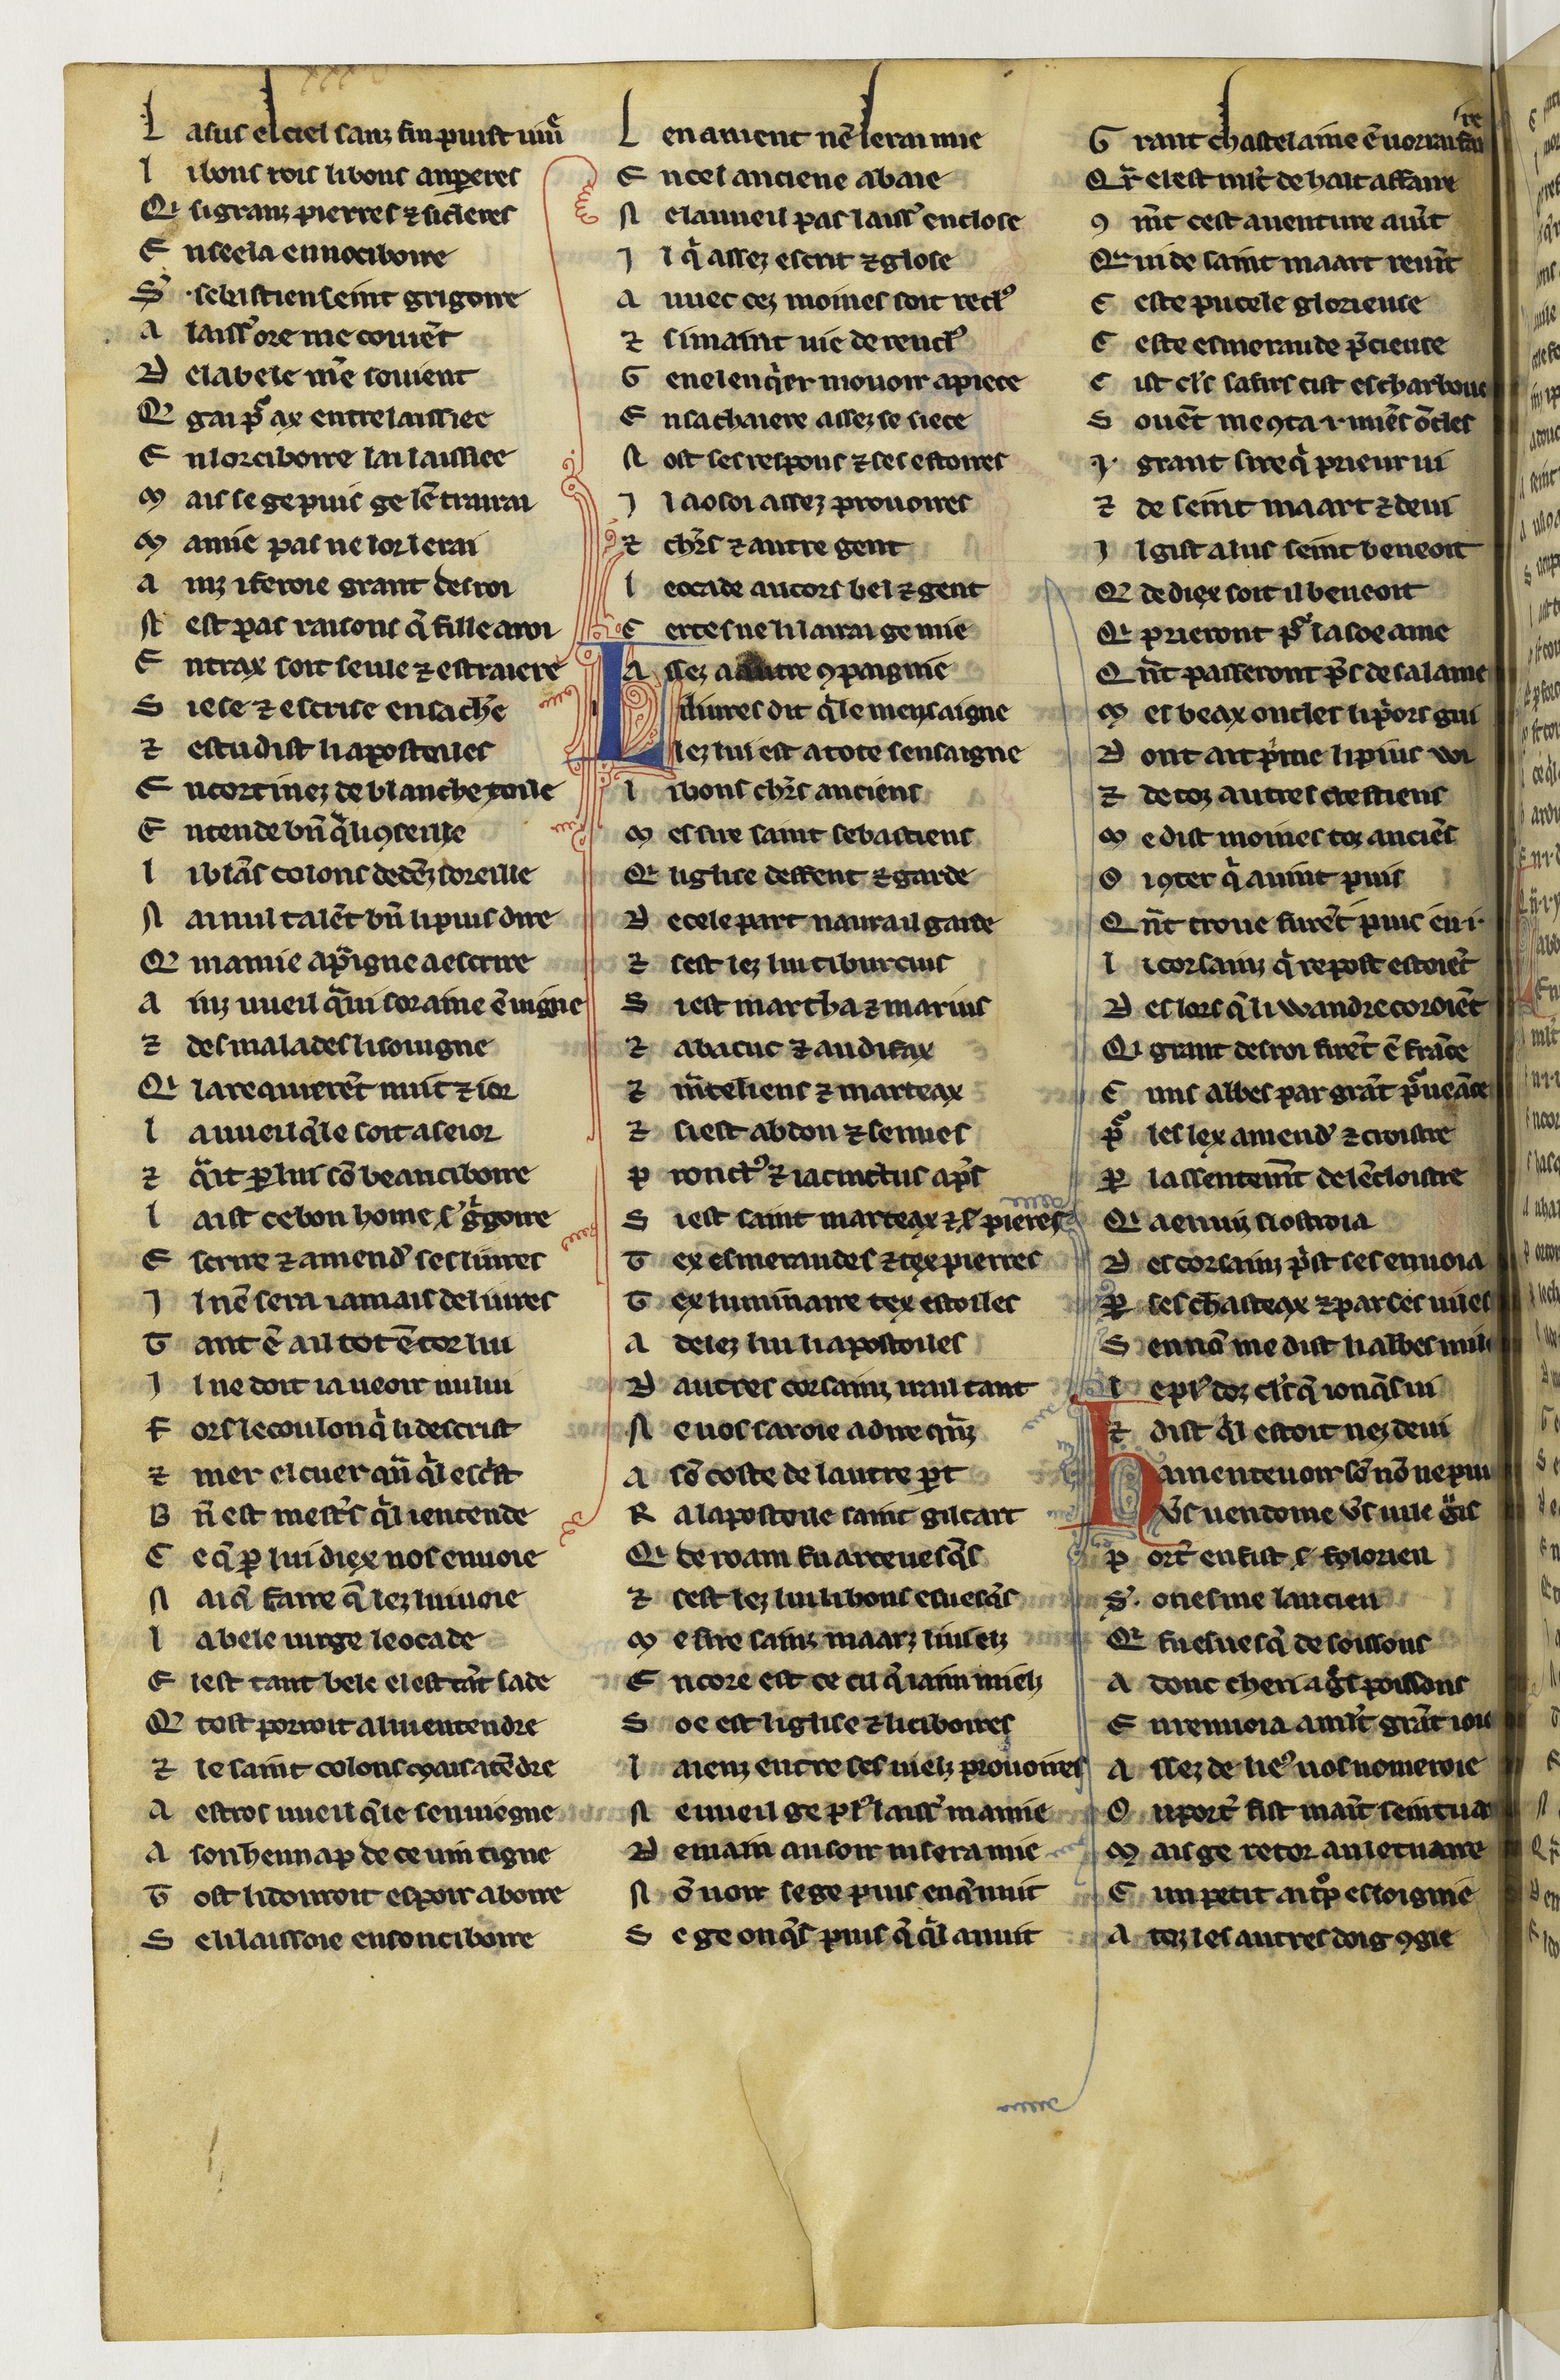 L asus el ciel sanz fin puist uiure
l i bons rois li bons anp̲eres
Qi si granz pierres ⁊ si cleres
E nseela en no ciboire
S. sebastien seint grigoire
A laissˀ ore me couiēt
D el a bele mˀe souient
Q gai pˀ ax entrelaissiee
E n lor ciboire lai laissiee
M ais se ge puis ge lē trairai
M amie pas ne lor lerai
A inz i feroie grant desroi
N est pas raisons q̄ fille a roi
E ntrax soit seule ⁊ estraiere
S i ele ⁊ escrise en sachˀe
⁊ estudist li apostoiles
E n cortinez de blanche toile
E ntende bn̄ q̄ li ꝯseille
l i blās colons dedēz soreille
N ai nul talēt bn̄ li puis dire
Q mamie apˀigne a escrire
A inz uueil q̄ ui soraine ē uigne
⁊ des malades li souigne
Qi la requierēt nuit ⁊ ior
l a uueil q̄le soit a seior
⁊ q̄it p̲ lui sō beau ciboire
l aist ce bon home .s. gˀgoire
E scrire ⁊ amendˀ ses liures
J l nē sera iamais deliures
T ant ē a il tot ētor lui
J l ne doit ia ueoir nului
F ors le coulon q̄ li descrist
⁊ mer el cuer qn̄ q̄l escˀst
B n̄ est mestˀs q̄l i entende
C e q̄ p̲ lui diex nos enuoie
N ai q̄ faire q̄ lez lui uoie
l a bele uirge leocade
E lest tant bele el est tāt sade
Q tost porroit a lui entendre
⁊ le saint colons mais atēdre
A estros uueil q̄le sen uiegne
A son hennap de ce uin tigne
T ost li donroit espoir a boire
S e li laissoie en son ciboire
L en auient nē lerai mie
E n cel anciene abaie
N e la uueil pas laissˀ enclose
J l q̄ assez escrit ⁊ glose
A uuec cez moines soit reclˀ
⁊ si maint uie de renclˀ
G ene len q̄er mouoir apiece
E n sa chaiere assez se siece
N ost ses respons ⁊ ses estoires
J l a o soi assez prouoires
⁊ chˀrs ⁊ autre gent
l eocade au cors bel ⁊ gent
C ertes ne li lairai ge mie
A ssez a autre ꝯpaignie
l i liures dit q̄le meysaigne
l ez lui est a tote sensaigne
l i bons chˀrs anciens
M essire saint sebastiens
Qi liglise deffent ⁊ garde
D e cele part naura il garde
⁊ sest lez lui tiburcius
S i est martha ⁊ marius
⁊ abacuc ⁊ audifax
⁊ m̄celiens ⁊ marteax
⁊ si est abdon ⁊ sennes
P ronclˀ ⁊ iacinctus apˀs
S i est saint marteax ⁊ .s. pieres
T ex esmeraudes ⁊ tex pierres
T ex luminaire tex estoiles
A delez lui li apostoiles
D autres corsainz i a il tant
N e uos saroie adire qn̄z
A sō coste de lautre p̲t
R a lapostoile saint gildart
Qi de roam fu arceuesq̄s
⁊ sest lez lui li bons euesq̄s
M e sire sainz maarz li uielz
E ncore est ce cil q̄ iaim mielz
S oe est liglise ⁊ li ciboires
l aienz entre ses uielz prouoires
N e uueil ge p̲lˀ laissˀ mamie
D emain au soir ni sera mie
N ō uoir se ge puis enq̄nuit
S e ge onq̄s puis q̄ q̄l anuit
G rant chastelaine ē uorrai faire
Qr̄ el est ml̄t de halt affaire
ꝯ m̄t cest auenture auīt
Qi ui de saint maart reuīt
C este pucele glorieuse
C este esmeraude pˀcieuse
C ist clˀs safirs cist escharboucle
S ouēt me ꝯta .i. miēs ōcles
J. grant sire q̄ prieur ui
⁊ de seint maart ⁊ de ui
J l gist a lius seint beneoit
Q de diex soit il beneoit
Qi prieront pˀ la soe ame
Q n̄t passeront pˀs de sa lame
M es beax oncles li pˀors gui
D ont ait pˀme li pius ui
⁊ de toz autres crestiens
M e dist moines toz anciēs
O i ꝯter q̄ auint puis
Q n̄t troue furēt puis en .i.
l i corsainz q̄ repost estoiēt
D es lors q̄ li wandre coroiēt
Qi grant desroi firēt ē frāce
C uns abbes par grāt pˀueāce
pˀ les lex amendˀ ⁊ croistre
P̲ lassentemt̄ de lēcloistre
Qi a enuiz sostroia
D es corsainz pˀst ses enuoia
P̲ ses chasteax ⁊ par ses uiles
S en nō me dist li abbes miles
l e plˀ doz clˀc q̄ ionq̄s ui
⁊ dist q̄l estoit nez de ui
h amenteuoir sō nō ne puis
Vˀs uendome ṽs uile gˀis
P ortˀ en fist .s. florien
S. onesme lancien
Qi fu euesq̄ de soissons
A donc cheri a gˀs poissons
E n renuoia a ml̄t grāt ioie
A ssez de lieˀ uos nomeroie
O u portˀ fist maīt seintuaire
M ais ge retor au letuaire
C un petit ai tˀp esloignie
A toz les autres doig ꝯgie